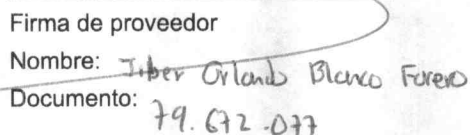 Firma de proveedor
Nombre: Jiber Orlando Blanco Forero
Documento: 79.672.077